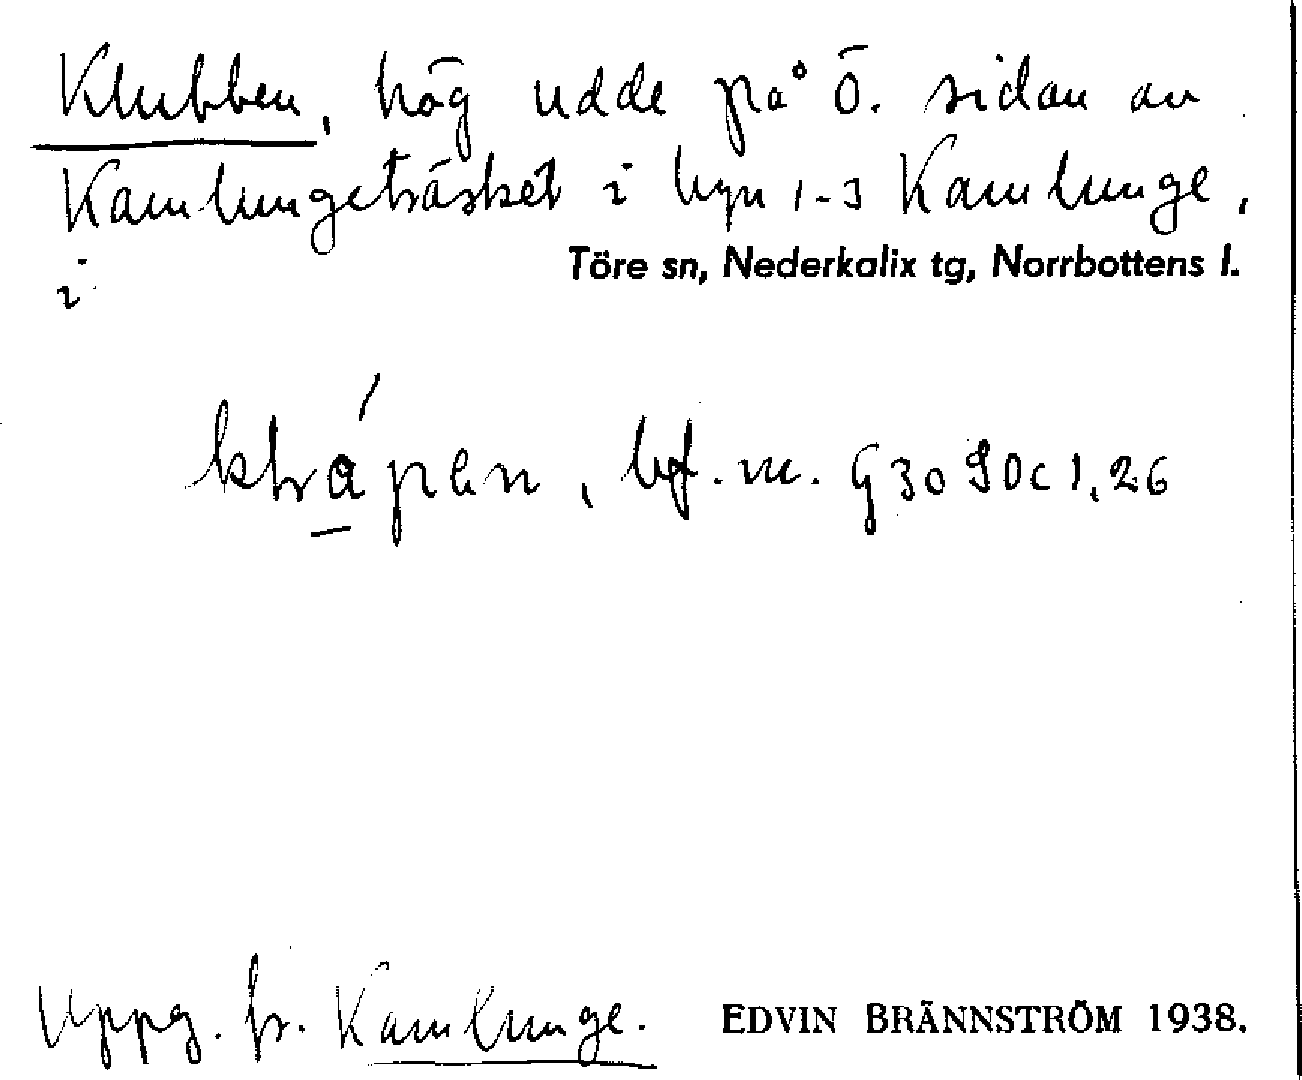 Klubben, hög udde på ö. sidan av
Kamlungeträsket i byn 1-3 Kamlunge,
i Töre sn, Nederkalix tg, Norrbottens l.
bf. m. G30 SOc 1,26
Uppg. fr. Kamlunge. EDVIN BRÄNNSTRÖM 1938.